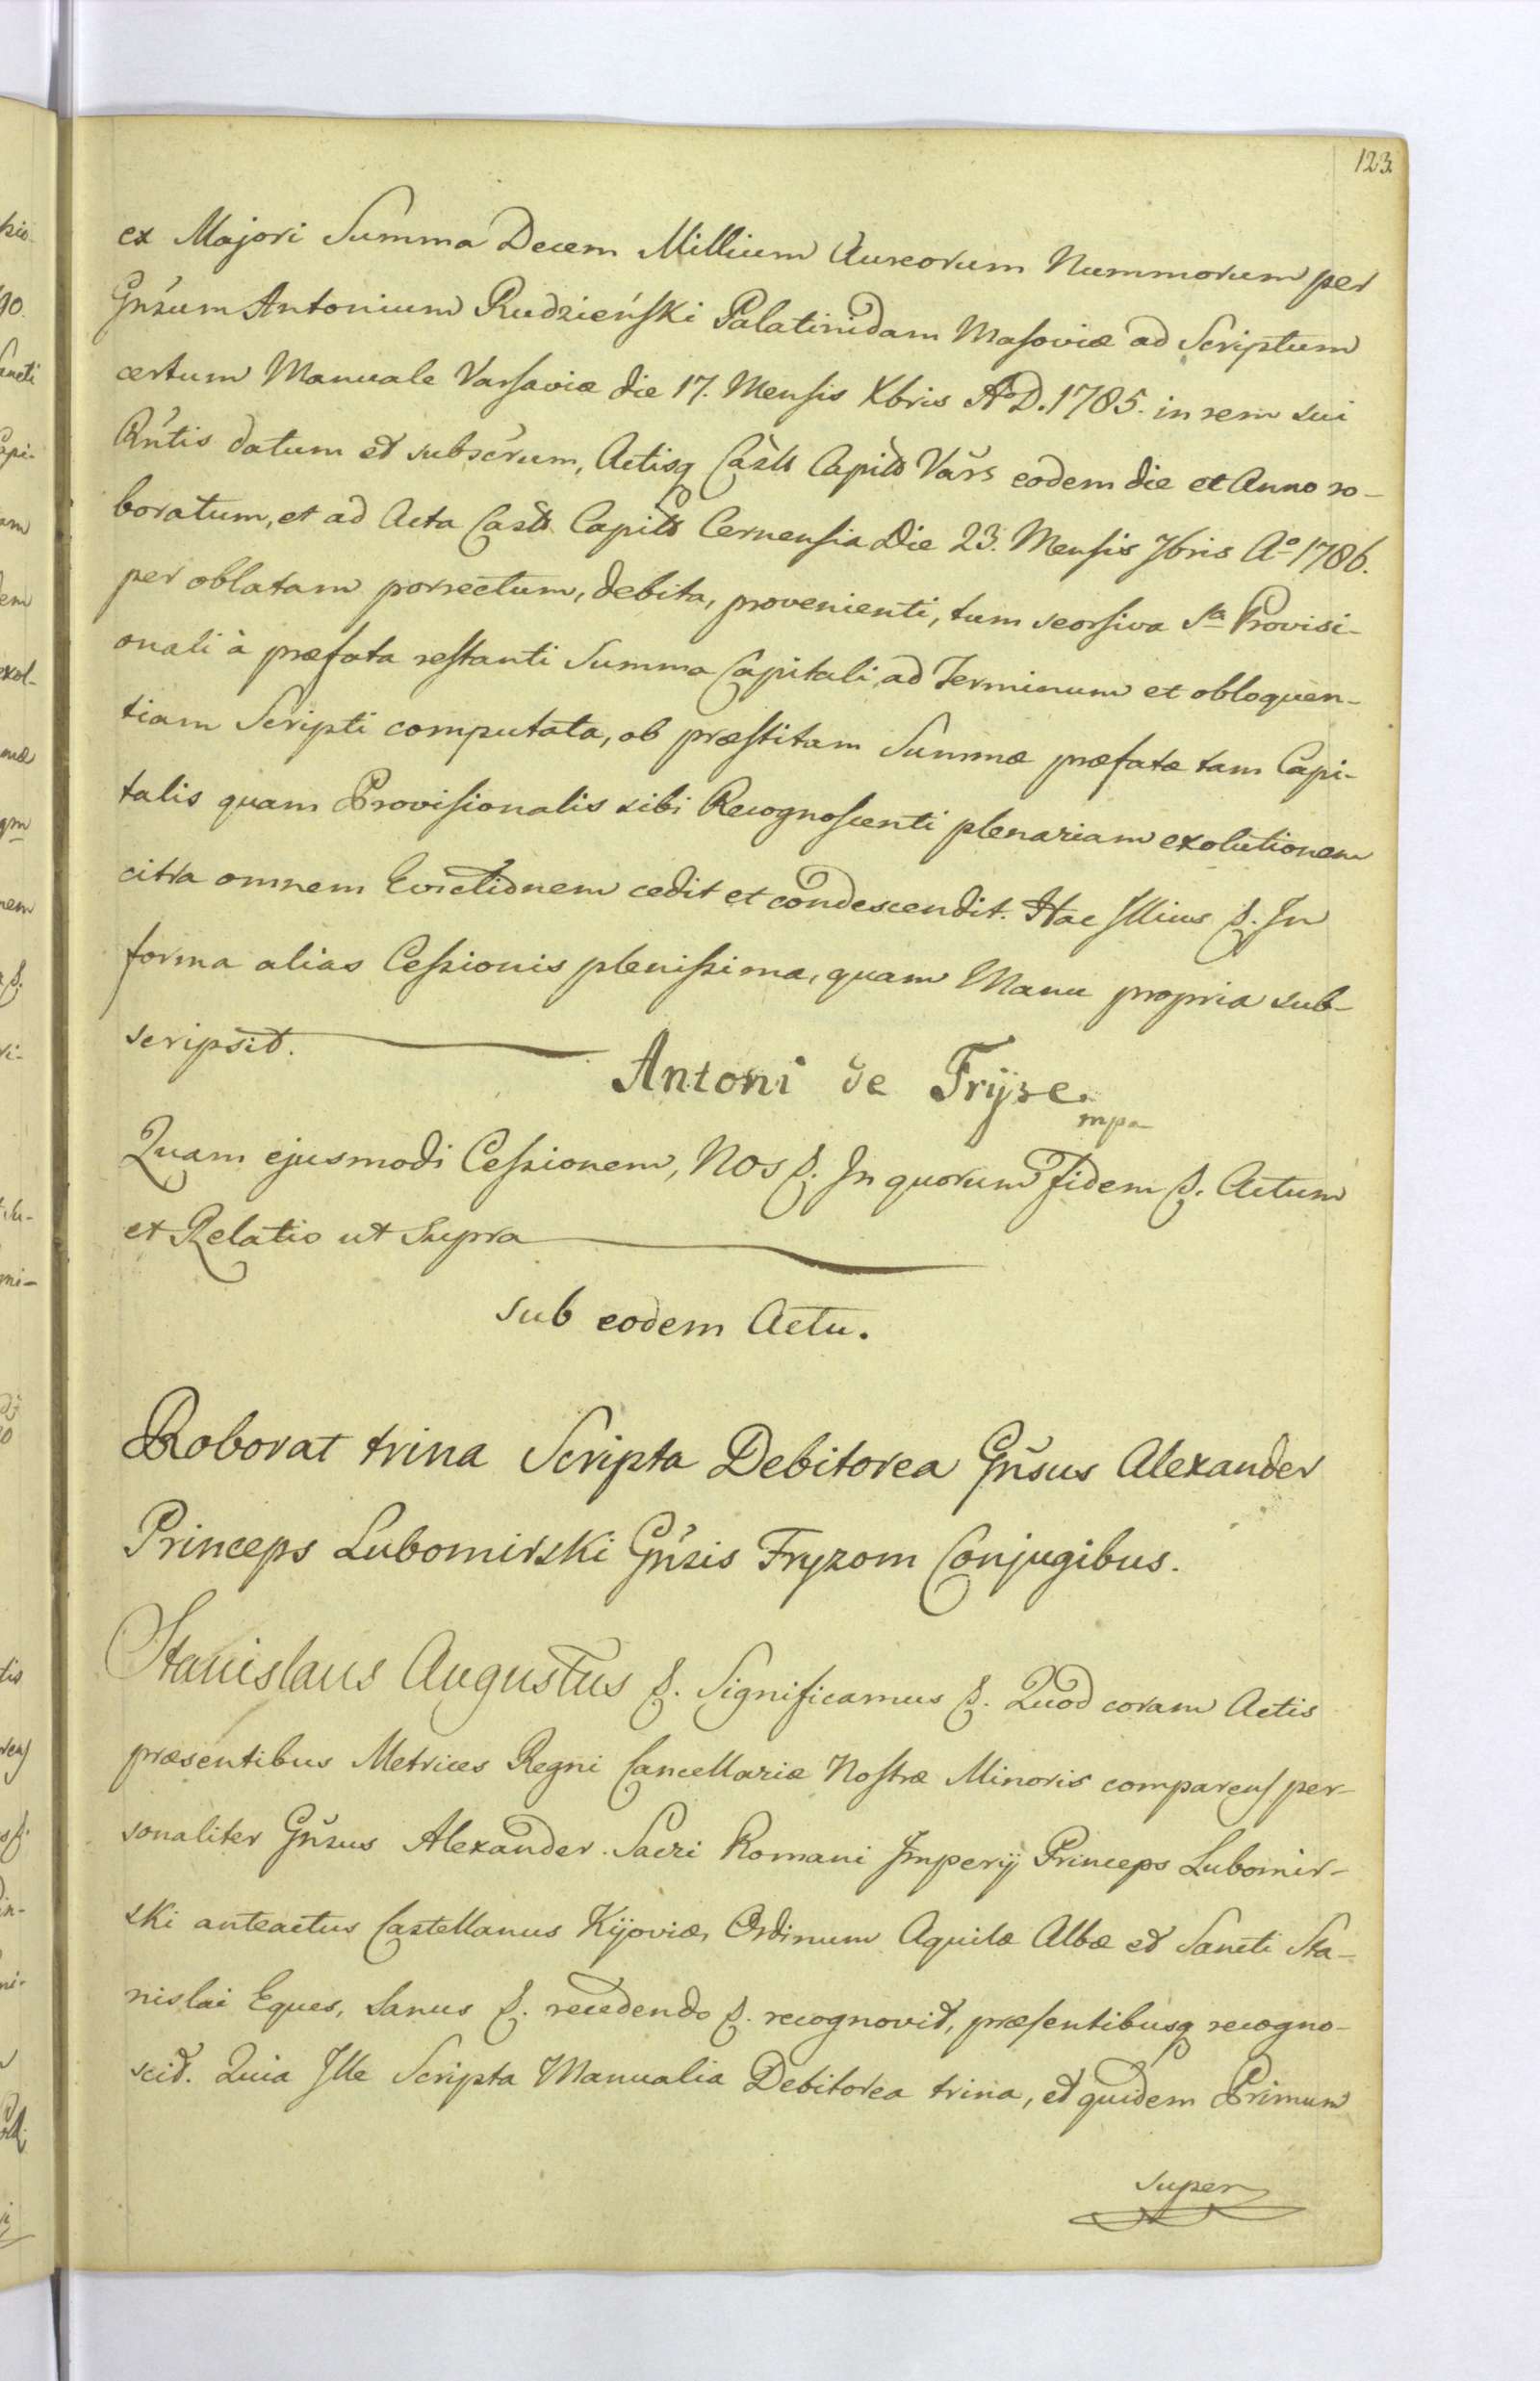 123.
ex Majori Summa Decem Millium Aureorum Nummorum per
Gnsum Antonium Rudzieński Palatinidam Masoviæ ad Scriptum
certum Manuale Varsaviæ die 17. Mensis Xbris A°D. 1785. in rem sui
Rntis datum et subscrum, Actisq Casts Capits Vars eodem die et Anno ro-
boratum, et ad Acta Casts Capits Cernensia Die 23. Mensis Jbris A° 1786.
per oblatam porrectum, debita, provenienti, tum seorsiva Sa Provisi-
onali à præfata restanti Summa Capitali ad Terminum et obloquen-
tiam Scripti computata, ob præstitam Summæ præfatæ tam Capi-
talis quam Provisionalis sibi Recognoscenti plenariam exolutionem
citra omnem Evictionem cedit et condescendit. Hac Illius &. In
forma alias Cessionis plenissima, quam Manu propria sub-
scripsit.
Antoni de Frÿze mpa
Quam ejusmodi Cessionem, Nos &. In quorum fidem &. Actum
et Relatio ut Supra
Sub eodem Actu.
Roborat trina Scripta Debitorea Gnsus Alexander
Princeps Lubomirski Gnsis Fryzom Conjugibus.
Stanislaus Augustus &. Significamus &. Quod coram Actis
præsentibus Metrices Regni Cancellariæ Nostræ Minoris comparens per-
sonaliter Gnsus Alexander Sacri Romani Imperÿ Princeps Lubomir-
ski anteactus Castellanus Kijoviæ, Ordinum Aquilæ Albæ et Sancti Sta-
nislai Eques, Sanus &. recedendo &. recognovit, præsentibusq recogno-
scit. Quia Ille Scripta Manualia Debitorea trina, et quidem Primum
super